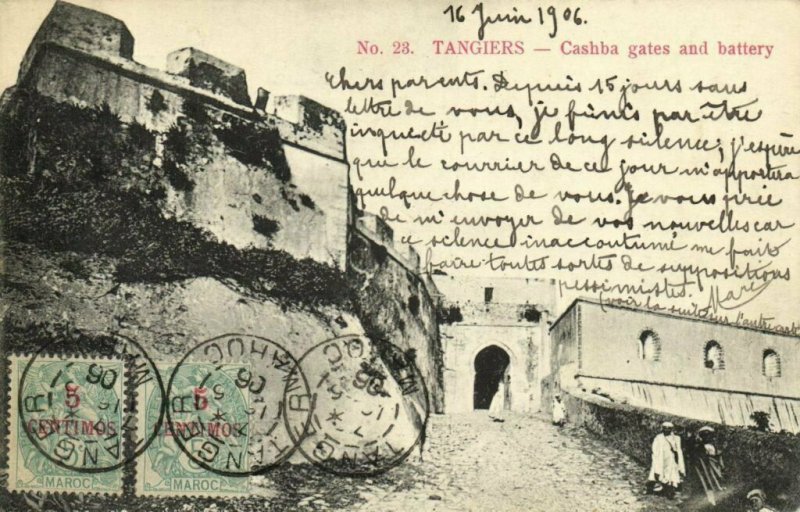 16 Juin 1906.
No. 23. TANGIERS — Cashba gates and battery
Chers parents. Depuis 15 jours sans
lettre de vous, je finis par être
inquieté par ce long silence; j'espère
que le courrier de ce jour m'apportera
quelque chose de vous. Je vous prie
de m'envoyer de vos nouvelles car
ce silence inaccoutumé me fait
faire toutes sortes de suppositions
pessimistes. Marie
(voir la suite sur l'autre carte
5 5
CENTIMOS CENTIMOS
MAROC MAROC
TANGER MAROC
TANGER MAROC
TANGER MAROC